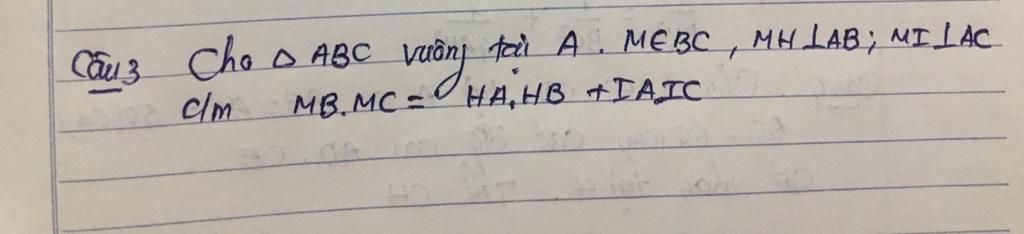 Câu 3 Cho △ ABC vuông tại A. M∈BC, MH⊥AB; MI⊥AC
c/m MB.MC = HA.HB + IA.IC